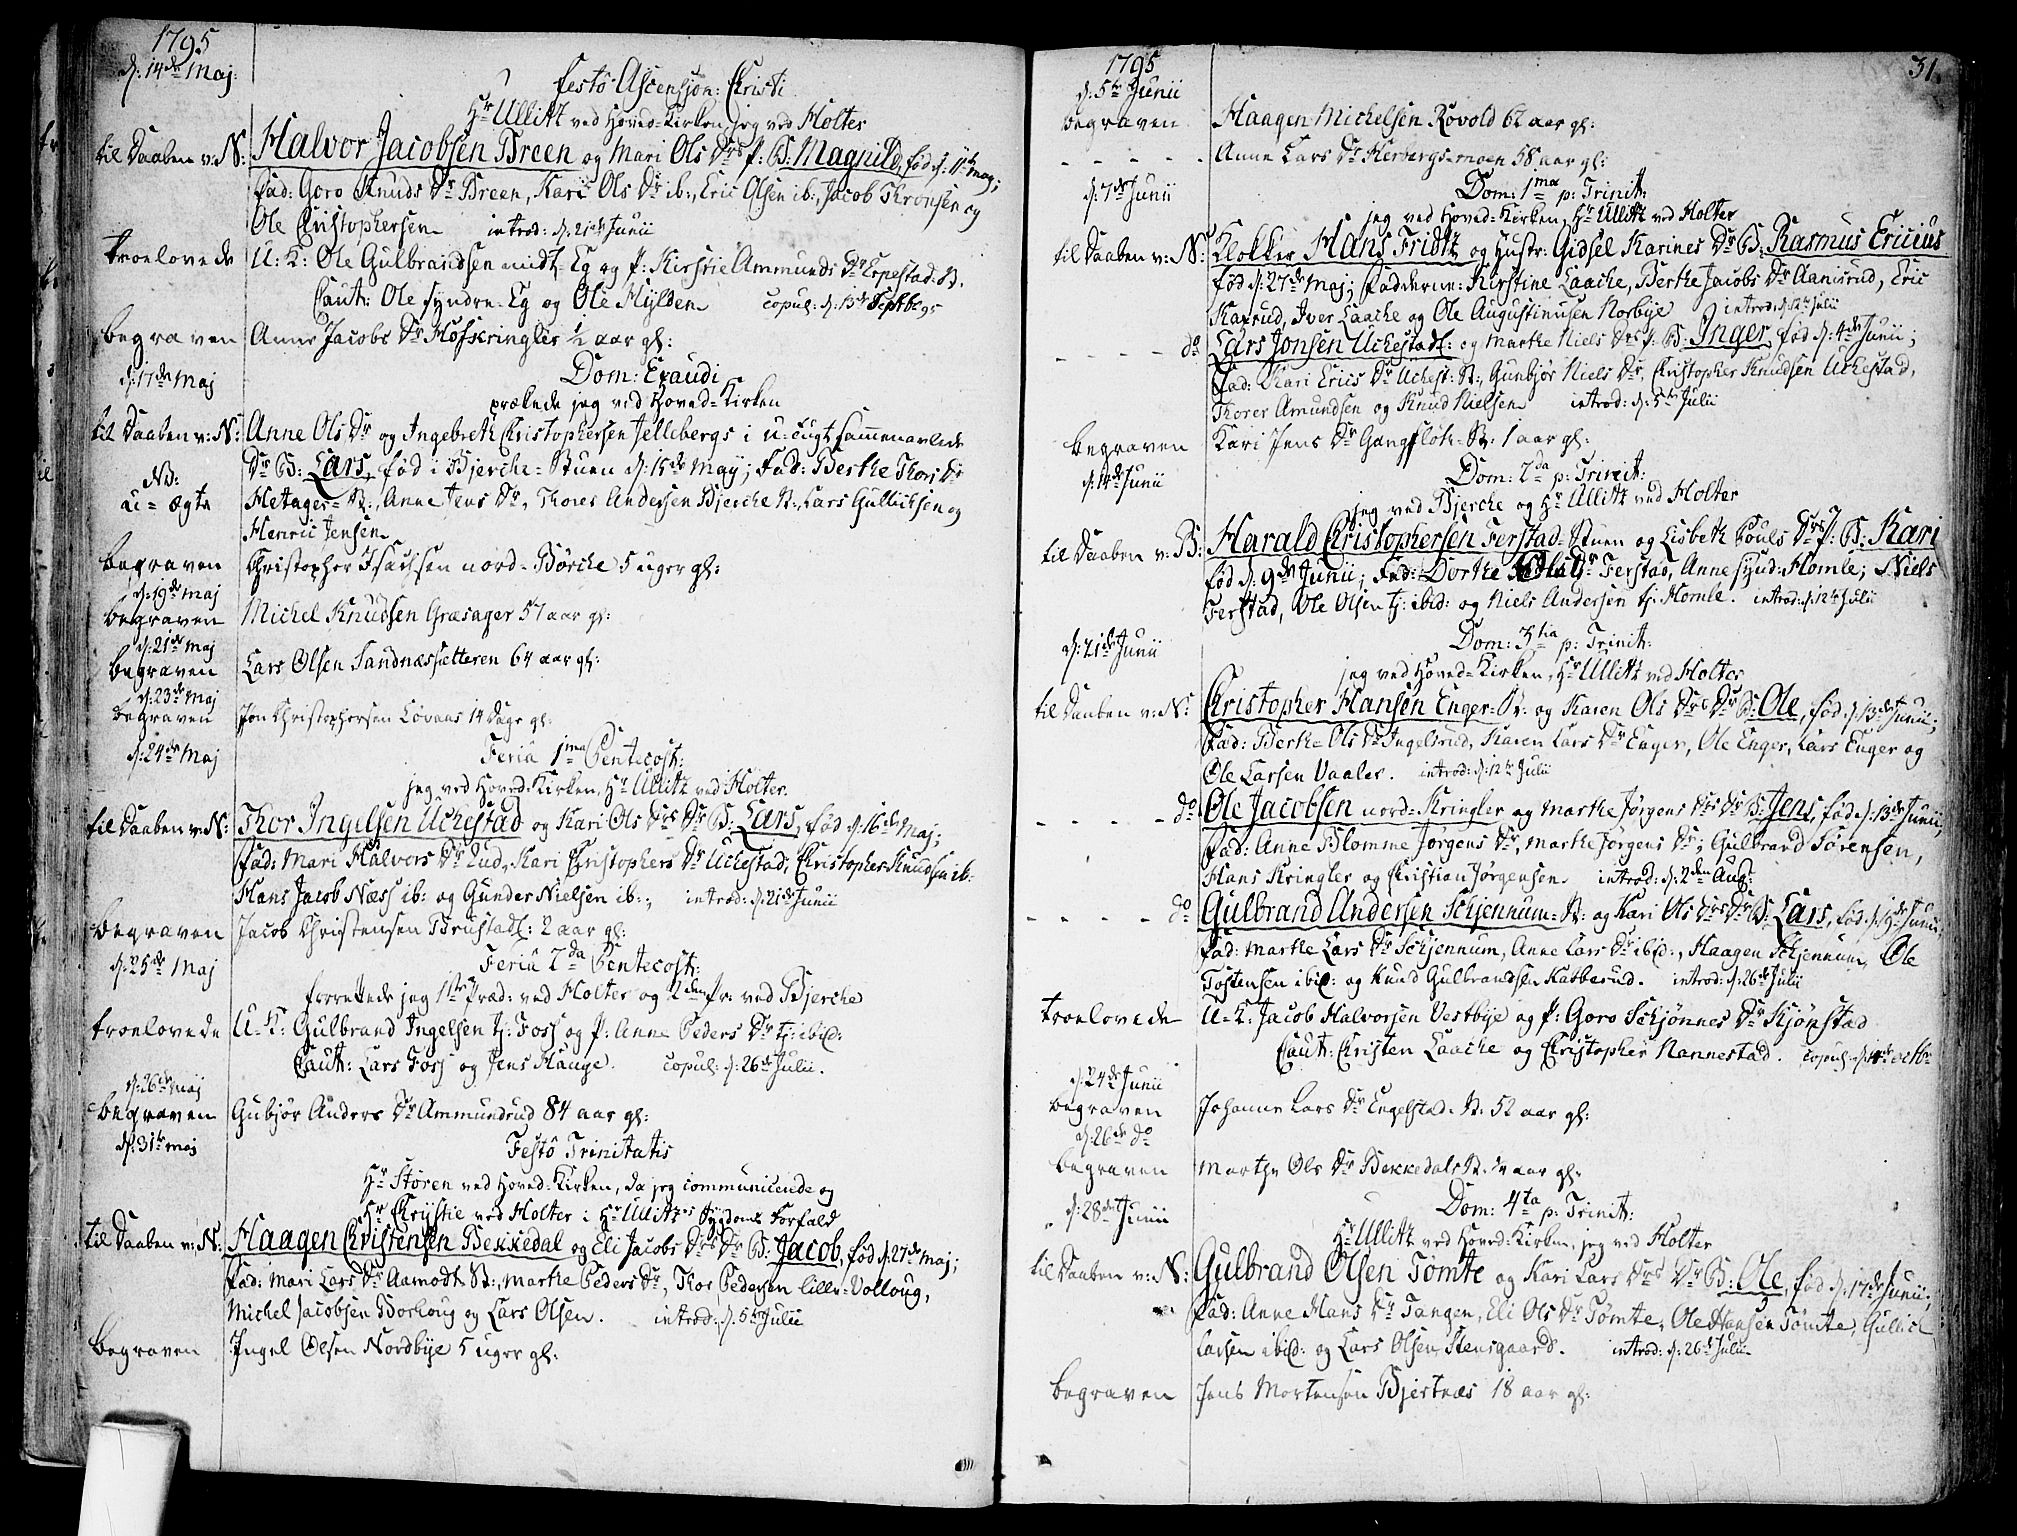 1795
d: 14de Maj:
Festo Ascensjon: Christi
Hr Ullitz ved Hoved-Kirken, jeg ved Holter
til Daaben v: N: Halvor Jacobsen Breen og Mari Ols Drs P: B: Magnild, fød d: 11te Maj;
Fad: Goro Knuds Dr Breen, Kari Ols Dr ib:, Eric Olsen ib:, Jacob Thronsen og
Ole Christophersen introd: d: 21de Junii
troelovede U: K: Ole Gulbrandsen midt-Eg og P: Kirstie Ammunds Dr
Caut: Ole syndre-Eg og Ole Mylden copul: d: 13de Septb: 95
begraven Anne Jacobs Dr Hofskringler 1/2 aar gl:
d: 17de Maj
Dom: Exaudi
prækede jeg ved Hoved-Kirken
til Daaben v: N: Anne Ols Dr og Ingebreth Christophersen Jellebergs i u-tugt sammenavlede
Dr B: Lars, fød i Bjerche-Stuen d: 15de May; Fad: Berthe Thors Dr
NB:
u-ægte Metager-St:, Anne Jens Dr, Thores Andersen Bjerche St:, Lars Gullichsen og
Henric Jensen
begraven Christopher Isachsen nord-Børche 5 uger gl:
d: 19de Maj
begraven Michel Knudsen Græsager 57 aar gl:
d: 21de Maj
begraven Lars Olsen Sandnæssætteren 64 aar gl:
d: 23de Maj
begraven Jon Christophersen Løvaas 14 Dage gl:
d: 24de Maj
Feria 1ma Pentecost:
jeg ved Hoved-Kirken, Hr Ullitz ved Holter.
til Daaben v: N: Thor Ingelsen Uchestad og Kari Ols Drs Dr B: Lars, fød d: 16de Maj;
Fad: Mari Halvors Dr Lud, Kari Christophers Dr Uchestad, Christopher Knudsen ib:
Hans Jacob Næss ib: og Gunder Nielsen ib:, introd: d: 21de Junii
begraven Jacob Christensen Brustad: 2 aar gl:
d: 25de Maj
Feria 2da Pentecost:
forrettede jeg 1ste Præd: ved Holter og 2den Pr: ved Bjerche
troelovede U-K: Gulbrand Ingelsen tj: Foss og P: Anne Peders Dr tj: ibid:
Caut: Lars Foss og Jens Hauge. copul: d: 26de Julii.
d: 26de Maj
begraven Gubjør Anders Dr Ammundrud 84 aar gl:
d: 31te Maj
Festo Trinitatis
Hr Støren ved Hoved-Kirken, da jeg communicende og
Hr Chrystie ved Holter i Hr Ullitz's Sygdoms Forfald
til Daaben v: N: Haagen Christensen Bekkedal og Eli Jacobs Drs Dr B: Jacob, fød d: 27de Maj;
Fad: Mari Lars Dr Aamodt St:, Marthe Peders Dr, Thor Pedersen lille-Volloug,
Michel Jacobsen Borhoug og Lars Olsen. introd: d: 5te Julii
begraven Ingel Olsen Nordbye 5 uger gl:
1795
31.
d: 5te Junii
begraven Haagen Michelsen Rovold 62 aar gl:
- - - - - Anne Lars Dr Herbergs-moen 58 aar gl:
d: 7de Junii
Dom: 1ma p: Trinit:
jeg ved Hoved-Kirken, Hr Ullitz ved Holter
til Daaben v: N: Klokker Hans Fridtz og Hustr: Gidsel Karines Dr B: Rasmus Ericius
fød d: 27de Maj; Fadderne: Kirstine Laache, Berthe Jacobs Dr Aanisrud, Eric
Kaxrud, Iver Laache og Ole Augustinusen Norbye introd: d: 12te Julii
- - - - do Lars Jonsen Uchestad: og Marthe Niels Drs P: B: Inger, fød d: 4de Junii;
Fad: Kari Erics Dr Uchest: St:, Gunbjør Niels Dr, Christopher Knudsen Uchestad,
Thorer Amundsen og Knud Nielsen introd: d: 5te Julii
begraven Kari Jens Dr Gangfløt-St: 1 aar gl:
d: 14de Junii
Dom: 2da p: Trinit:
jeg ved Bjerche og Hr Ullitz ved Holter
til Daaben v: B: Harald Christophersen Ferstad-Stuen og Lisbeth Pouls Drs P: B: Kari
fød d: 9de Junii; Fad: Dorthe Ols Dr Ferstad, Anne synd: Homle; Niels
Ferstad, Ole Olsen tj: ibid: og Niels Andersen tj: Homle. introd: d: 12te Julii
d: 21de Junii
Dom: 3tia p: Trinit:
jeg ved Hoved-Kirken, Hr Ullitz ved Holter
til Daaben v: N: Christopher Hansen Enger-St: og Karen Ols Drs Dr B: Ole, fød d: 13de Junii;
Fad: Berthe Ols Dr Ingelsrud, Karen Lars Dr Enger, Ole Enger, Lars Enger og
Ole Larsen Vaaler. introd: d: 12te Julii
- - - - - do Ole Jacobsen nord-Kringler og Marthe Jørgens Drs Dr B: Jens, fød d: 13de Junii,
Fad: Anne Blomme Jørgens Dr, Marthe Jørgens Dr; Gulbrand Sørensen,
Hans Kringler og Christian Jørgensen introd: d: 2den Aug:
- - - - - do Gulbrand Andersen Schjennum-St: og Kari Ols Drs Dr B: Lars, fød d: 19de Junii,
Fad: Marthe Lars Dr Schjennum, Anne Lars Dr ibid:, Haagen Schjennum, Ole
Tostensen ibid: og Knud Gulbrandsen Kabberud. introd: d: 26de Julii
troelovede U-K: Jacob Halvorsen Vestbye og P: Goro Schjønnes Dr Kjønstad
Caut: Christen Laache og Christopher Nannestad. copul: d: octbr
d: 24de Junii
begraven Johanne Lars Dr Engelstad-St: 52 aar gl:
d: 26de do
begraven Marthe Ols Dr Bekkedals St: 1/4 aar gl:
d: 28de Junii
Dom: 4ta p: Trinit:
Hr Ullitz ved Hoved-Kirken, jeg ved Holter
til Daaben v: N: Gulbrand Olsen Tømte og Kari Lars Drs Dr B: Ole, fød d: 17de Junii;
Fad: Anne Hans Dr Tangen, Eli Ols Dr Tømte, Ole Hansen Tømte, Gullich
Larsen ibid: og Lars Olsen Stensgaard. introd: d: 26de Julii
begraven Jens Mortensen Bjestnæs 18 aar gl: